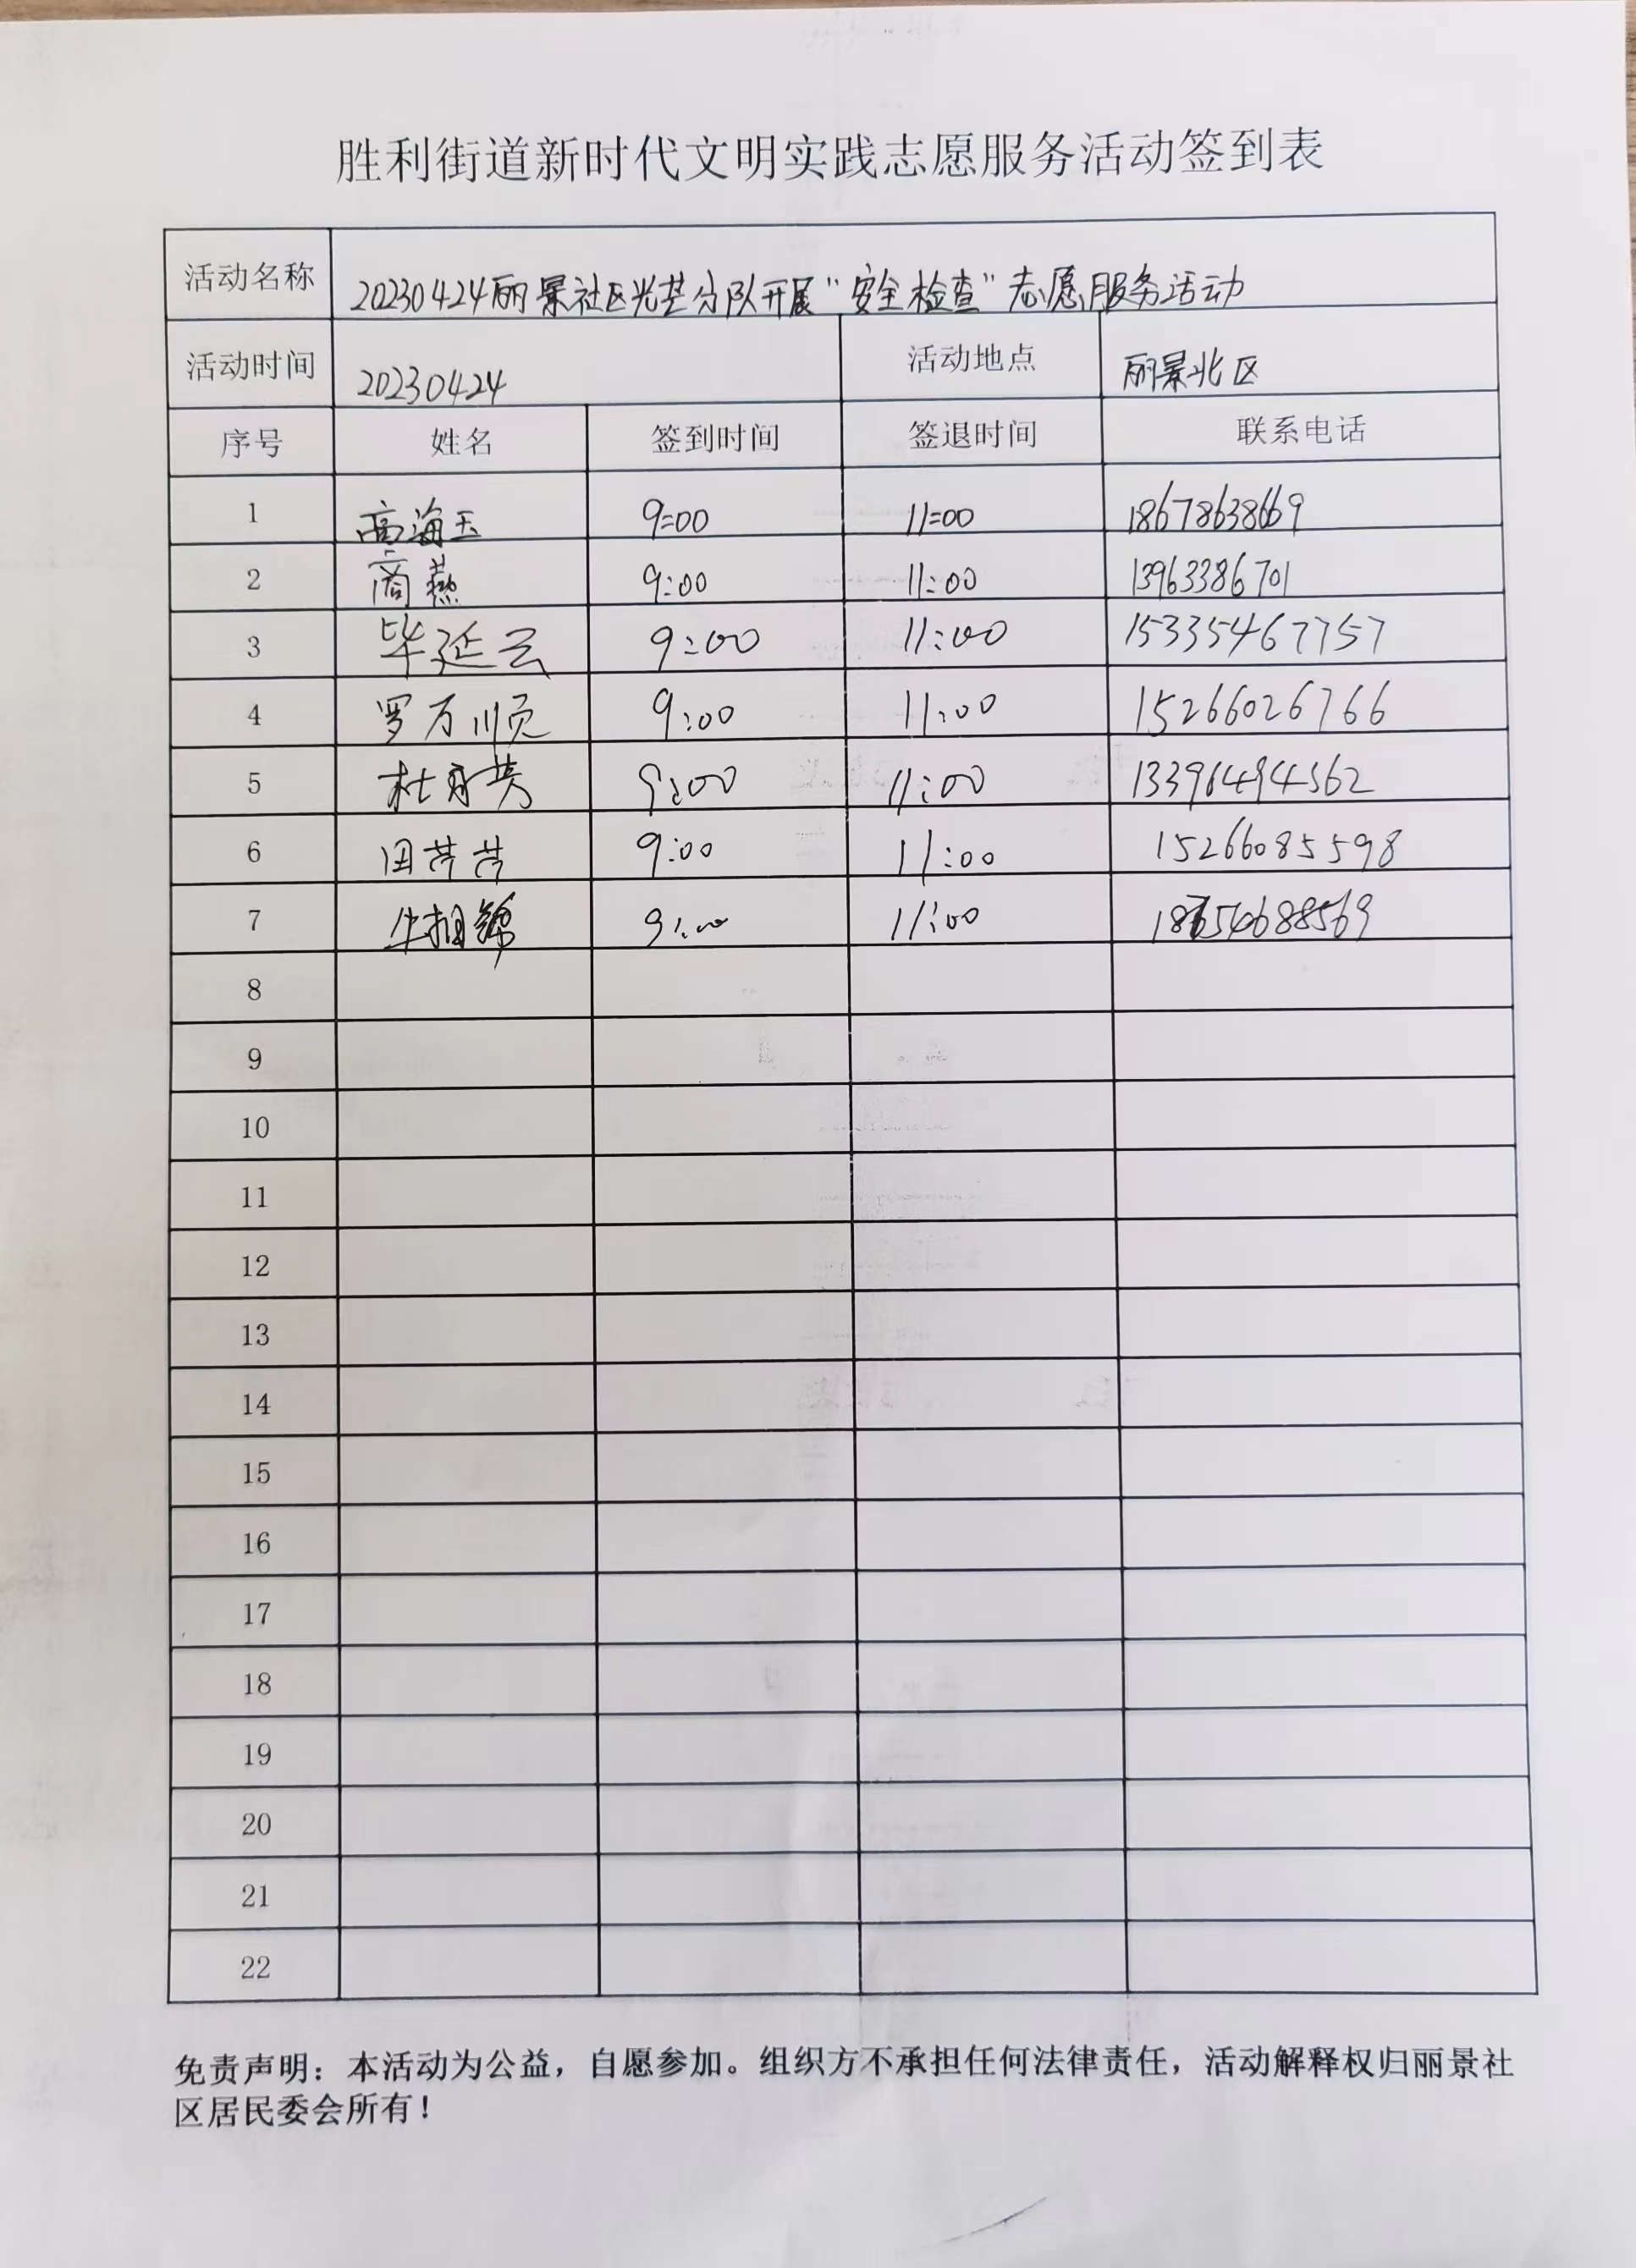 胜利街道新时代文明实践志愿服务活动签到表
活动名称 20230424丽景社区光芒分队开展"安全检查"志愿服务活动
活动时间 20230424 活动地点 丽景北区
序号 姓名 签到时间 签退时间 联系电话
1 高海玉 9:00 11:00 18678638669
2 商燕 9:00 11:00 13963386701
3 毕延云 9:00 11:00 15335467757
4 罗万顺 9:00 11:00 15266026766
5 杜 9:00 11:00 13396494562
6 田芹芹 9:00 11:00 15266085598
7 牛 9:00 11:00
8
9
10
11
12
13
14
15
16
17
18
19
20
21
22
免责声明：本活动为公益，自愿参加。组织方不承担任何法律责任，活动解释权归丽景社
区居民委会所有！